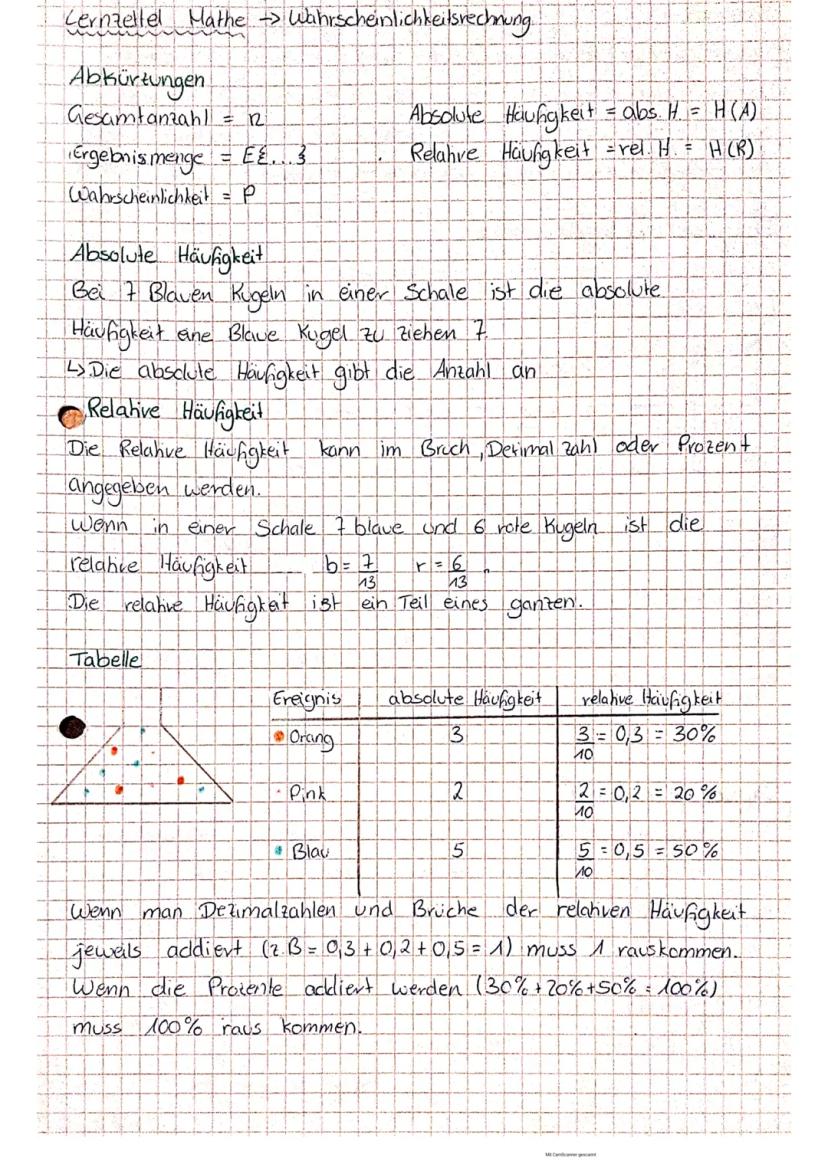 Lernzettel Mathe → Wahrscheinlichkeitsrechnung
Abkürtungen
Gesamtanzahl = n
Absolute Häufigkeit = abs. H. = H(A)
Ergebnismenge = E{...}
Relative Häufigkeit = rel. H. = H(R)
Wahrscheinlichkeit = P
Absolute Häufigkeit
Bei 7 Blauen Kugeln in einer Schale ist die absolute
Häufigkeit eine Blaue Kugel zu ziehen 7.
↳ Die absolute Häufigkeit gibt die Anzahl an
Relative Häufigkeit
Die Relative Häufigkeit kann im Bruch, Dezimal zahl oder Prozent
angegeben werden.
Wenn in einer Schale 7 blaue und 6 rote Kugeln ist die
relative Häufigkeit b = 7/13 r = 6/13.
Die relative Häufigkeit ist ein Teil eines ganzen.
Tabelle
Ereignis absolute Häufigkeit relative Häufigkeit
Orang 3 3/10 = 0,3 = 30%
Pink 2 2/10 = 0,2 = 20%
Blau 5 5/10 = 0,5 = 50%
Wenn man Dezimalzahlen und Brüche der relativen Häufigkeit
jeweils addiert (z.B = 0,3 + 0,2 + 0,5 = 1) muss 1 rauskommen.
Wenn die Prozente addiert werden (30% + 20% + 50% = 100%)
muss 100% raus kommen.
Mit CamScanner gescannt